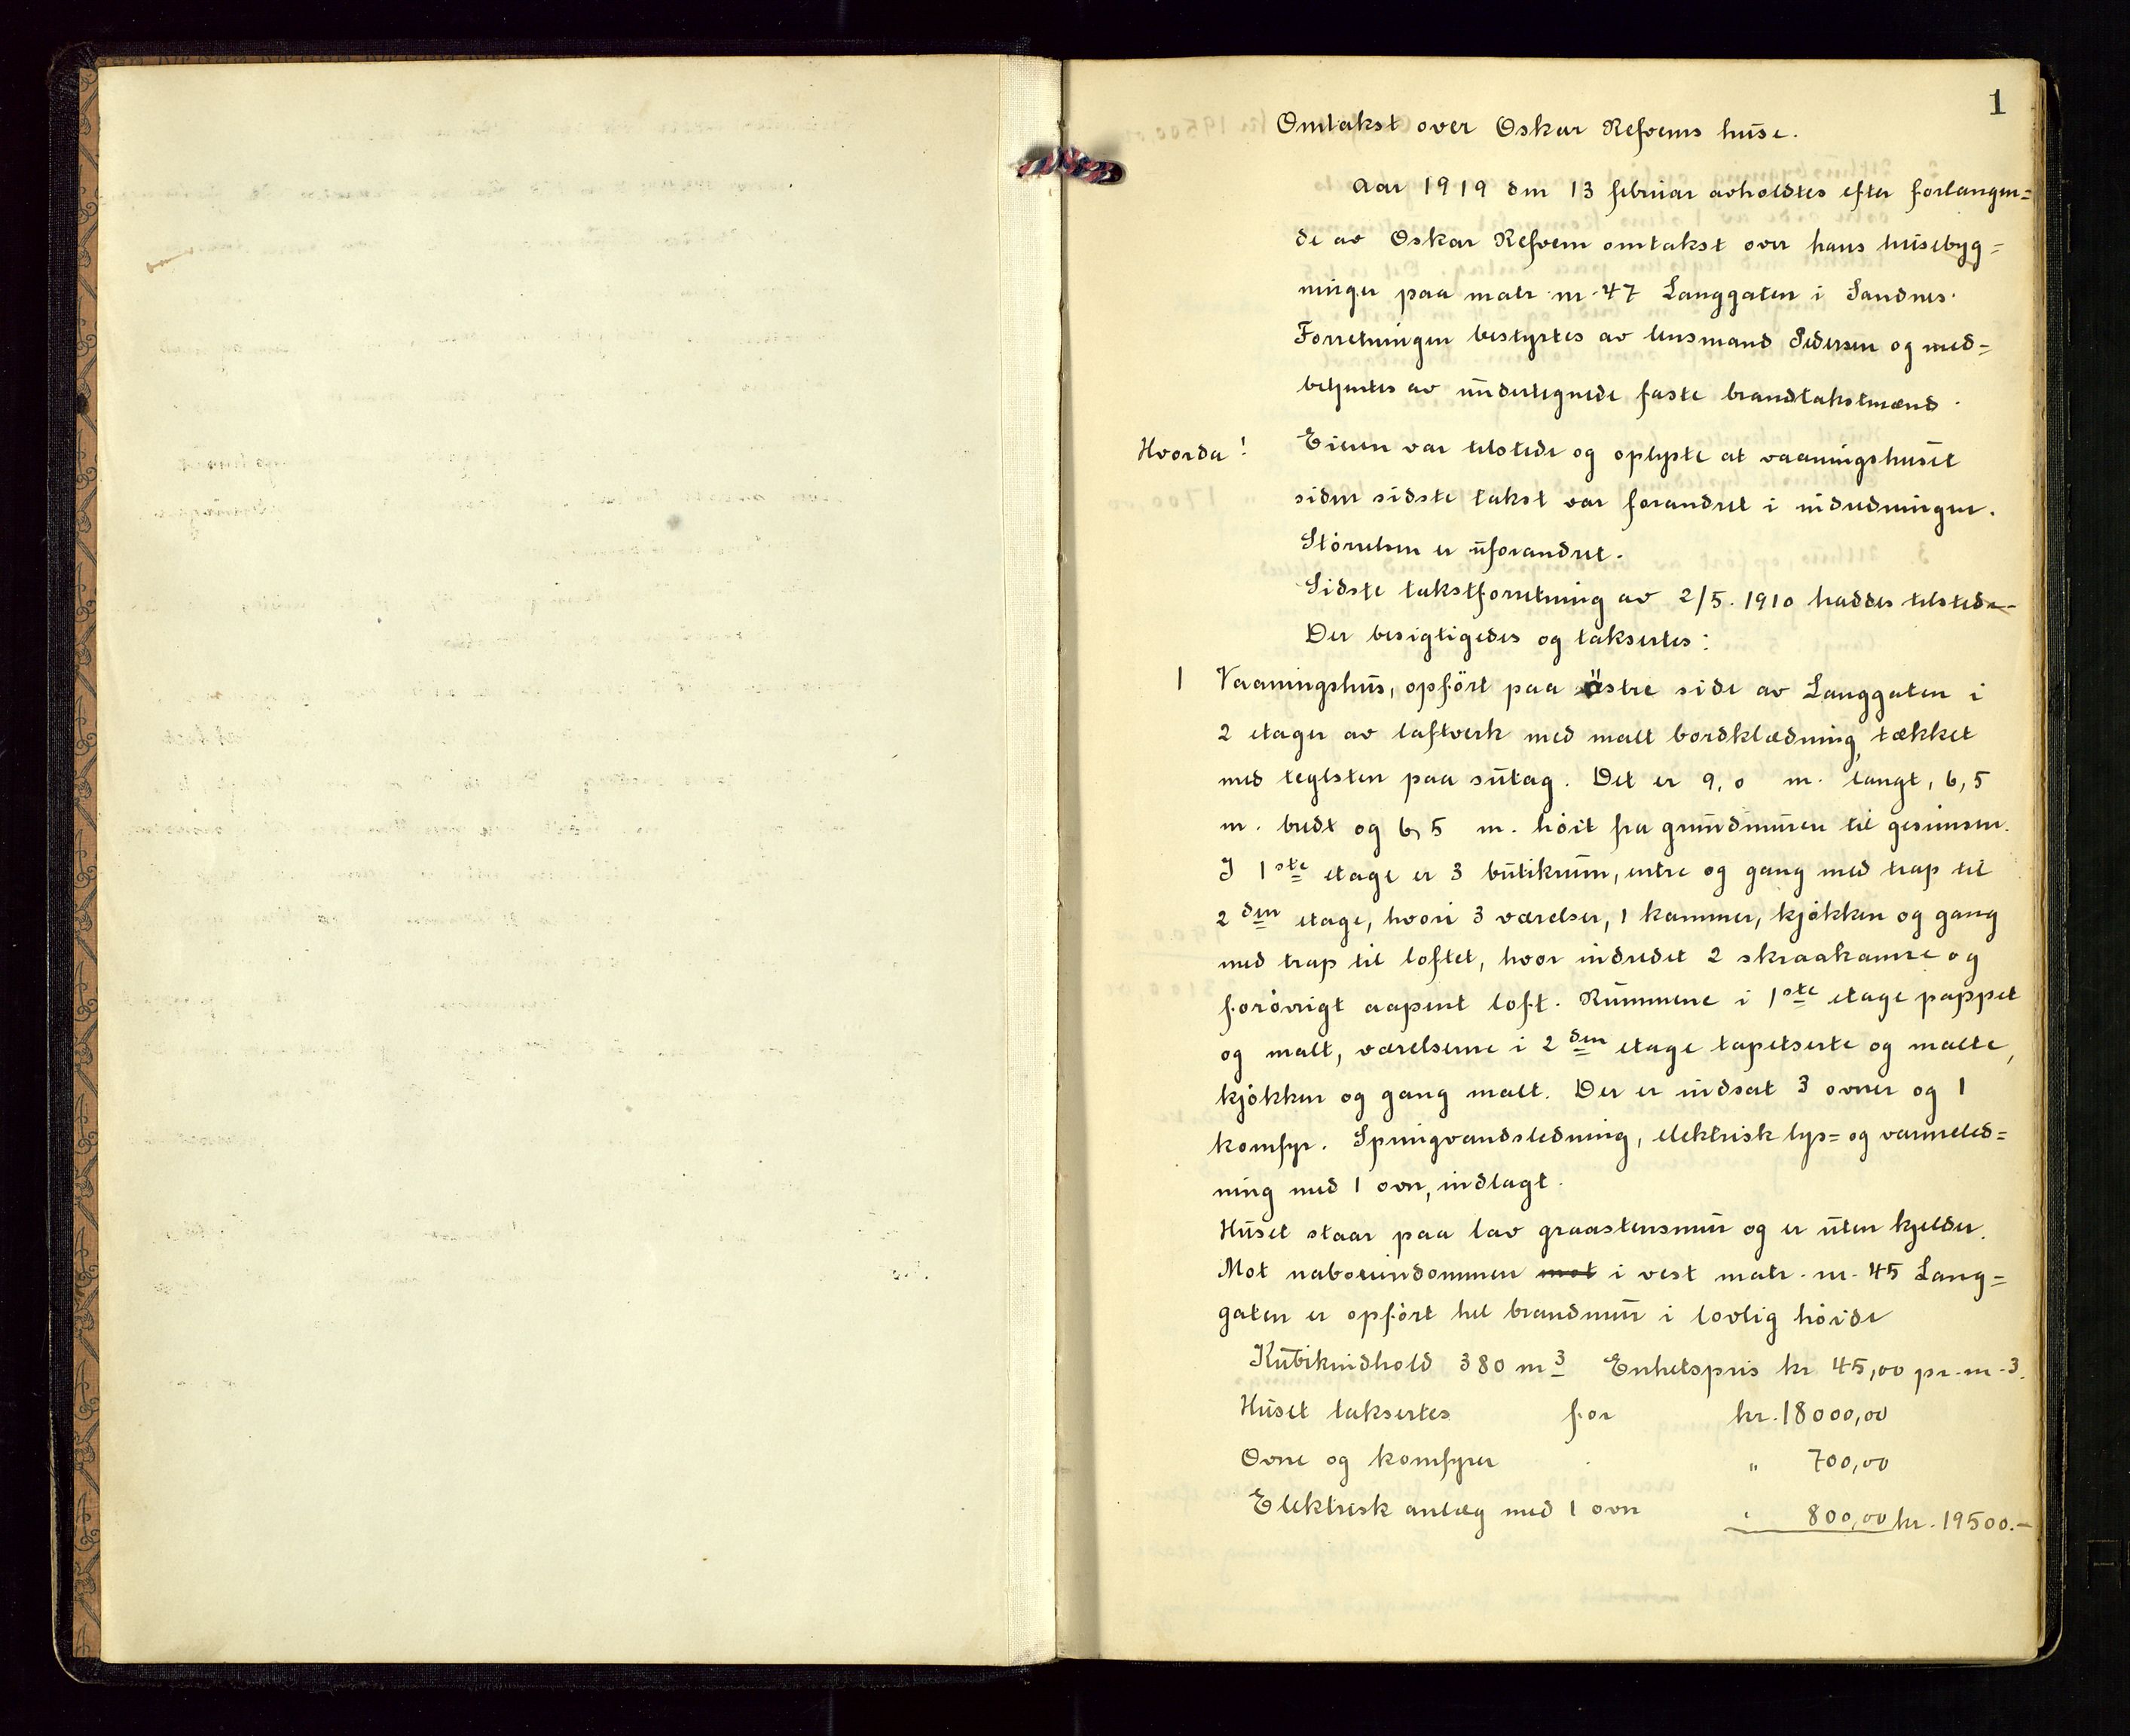 1
Omtakst over Oskar Refvems huse.
Aar 1919 den 13 februar avholdtes efter forlangen=
de av Oskar Refvem omtakst over hans husebyg=
ninger paa matr. nr. 47 Langgaten i Sandnes.
Forretningen bestyrtes av lensmand Pedersen og med=
betjentes av undertegnede faste brandtakstmænd.
Hvorda! Eieren var tilstede og oplyste at vaaningshuset
siden sidste takst var forandret i indredningen.
Störrelsen er uforandret.
Sidste takstforretning av 2/5. 1910 haddes tilstede.
Der besigtigedes og taksertes:
1 Vaaningshus, opfört paa östre side av Langgaten i
2 etager av laftverk med malt bordklædning, tækket
med teglsten paa sutag. Det er 9,0 m. langt, 6,5
m. bredt og 6,5 m. höit fra grundmuren til gesimsen.
I 1ste etage er 3 butikrum, entre og gang med trap til
2den etage, hvori 3 værelser, 1 kammer, kjökken og gang
med trap til loftet, hvor indredet 2 skraakamre og
forövrigt aapent loft. Rummene i 1ste etage pappet
og malt, værelserne i 2den etage tapetserte og malte,
kjökken og gang malt. Der er indsat 3 ovner og 1
komfyr. Springvandsledning, elektrisk lys= og varmeled=
ning med 1 ovn, indlagt.
Huset staar paa lav graastensmur og er uten kjelder.
Mot naboeiendommen mot i vest matr. nr. 45 Lang=
gaten er opfört hel brandmur i lovlig höide
Kubikindhold 380 m3 Enhetspris kr 45,00 pr. m. 3.
Huset taksertes for kr. 18000,00
Ovne og komfyrer " 700,00
Elektrisk anlæg med 1 ovn " 800,00 kr. 19500.-